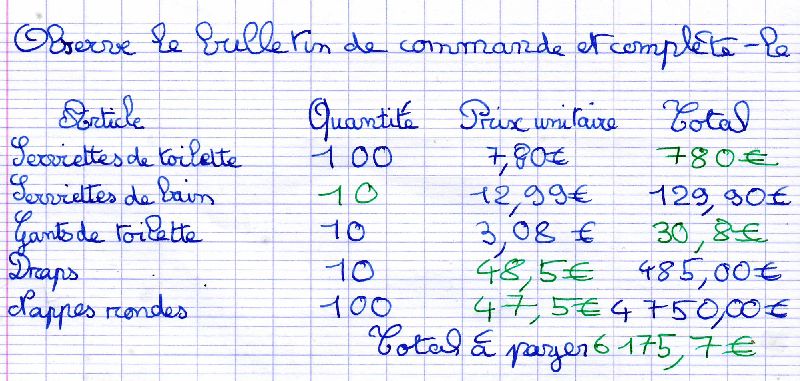 Observe le bulletin de commande et complète-le
Article Quantité Prix unitaire Total
Serviettes de toilette 100 7,80€ 780€
Serviettes de bain 10 12,99€ 129,90€
Gants de toilette 10 3,08 € 30,8€
Draps 10 48,5€ 485,00€
Nappes rondes 100 47,5€ 4750,00€
Total à payer 6175,7€